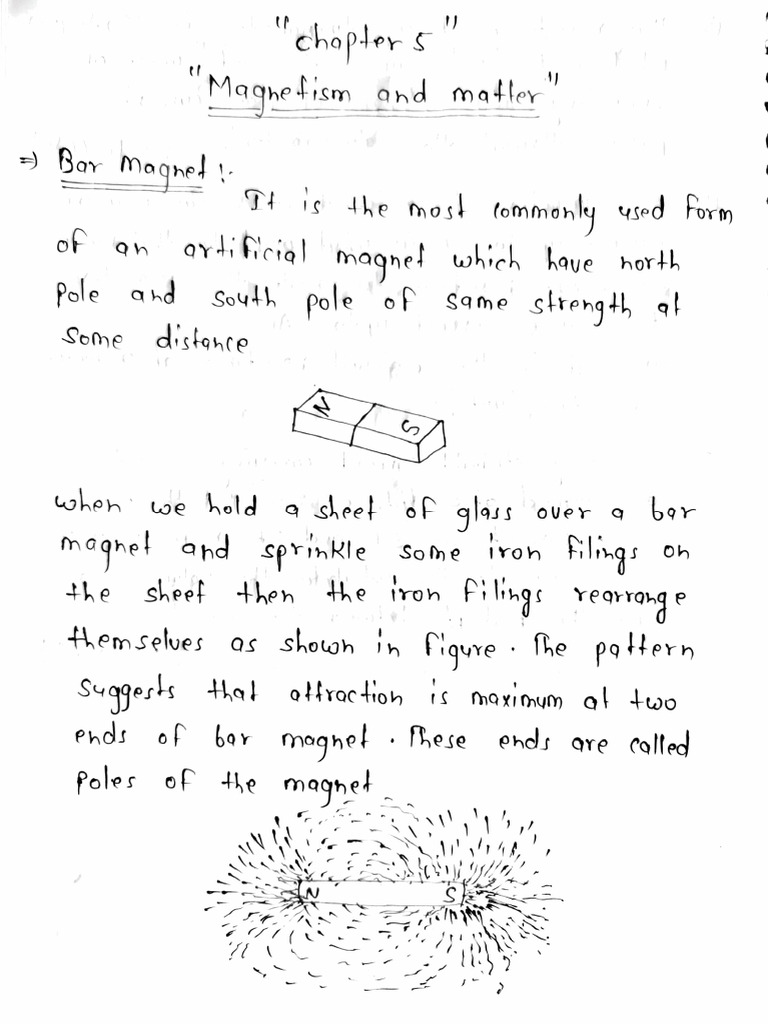 "chapter 5"
"Magnetism and matter"
⇒ Bar Magnet :-
It is the most commonly used form
of an artificial magnet which have north
pole and south pole of same strength at
some distance
N S
when we hold a sheet of glass over a bar
magnet and sprinkle some iron filings on
the sheet then the iron filings rearrange
themselves as shown in figure. The pattern
suggests that attraction is maximum at two
ends of bar magnet. These ends are called
poles of the magnet
N S